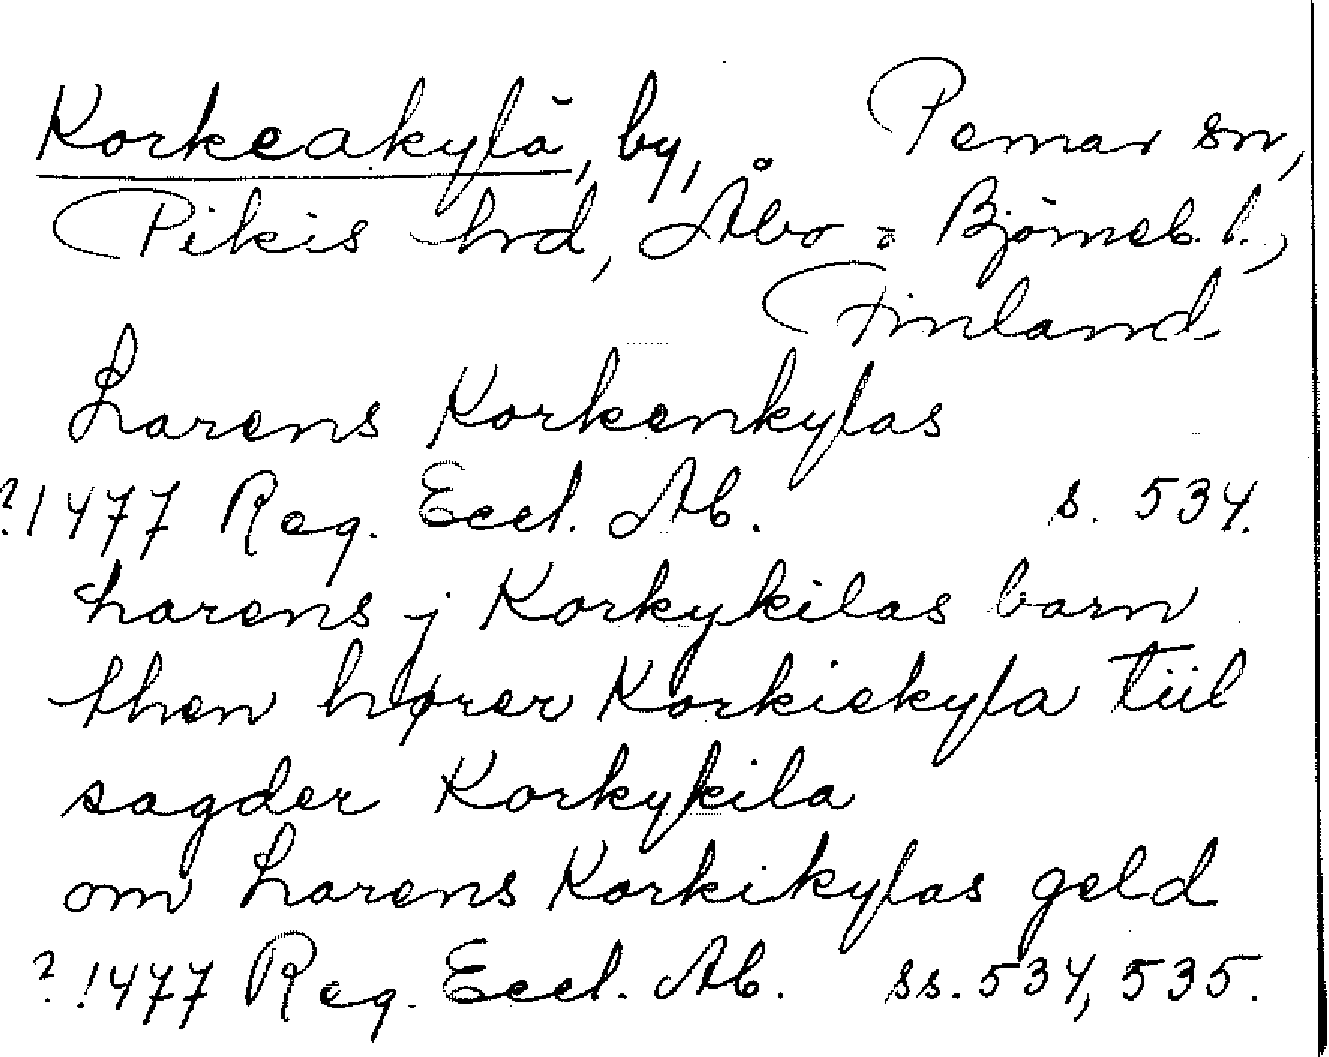 Korkeakylä, by, Pemar sn,
Pikis hrd, Åbo = Björneb. l.,
Finland
Larens Korkenkylas
?1477 Reg. Eccl. Ab. s. 534.
Larens j Korkykilas barn
then hører Korkiekyla tiil
sagder Korkykila
om Larens Korkikylas geld
?1477 Reg. Eccl. Ab. ss. 534, 535.